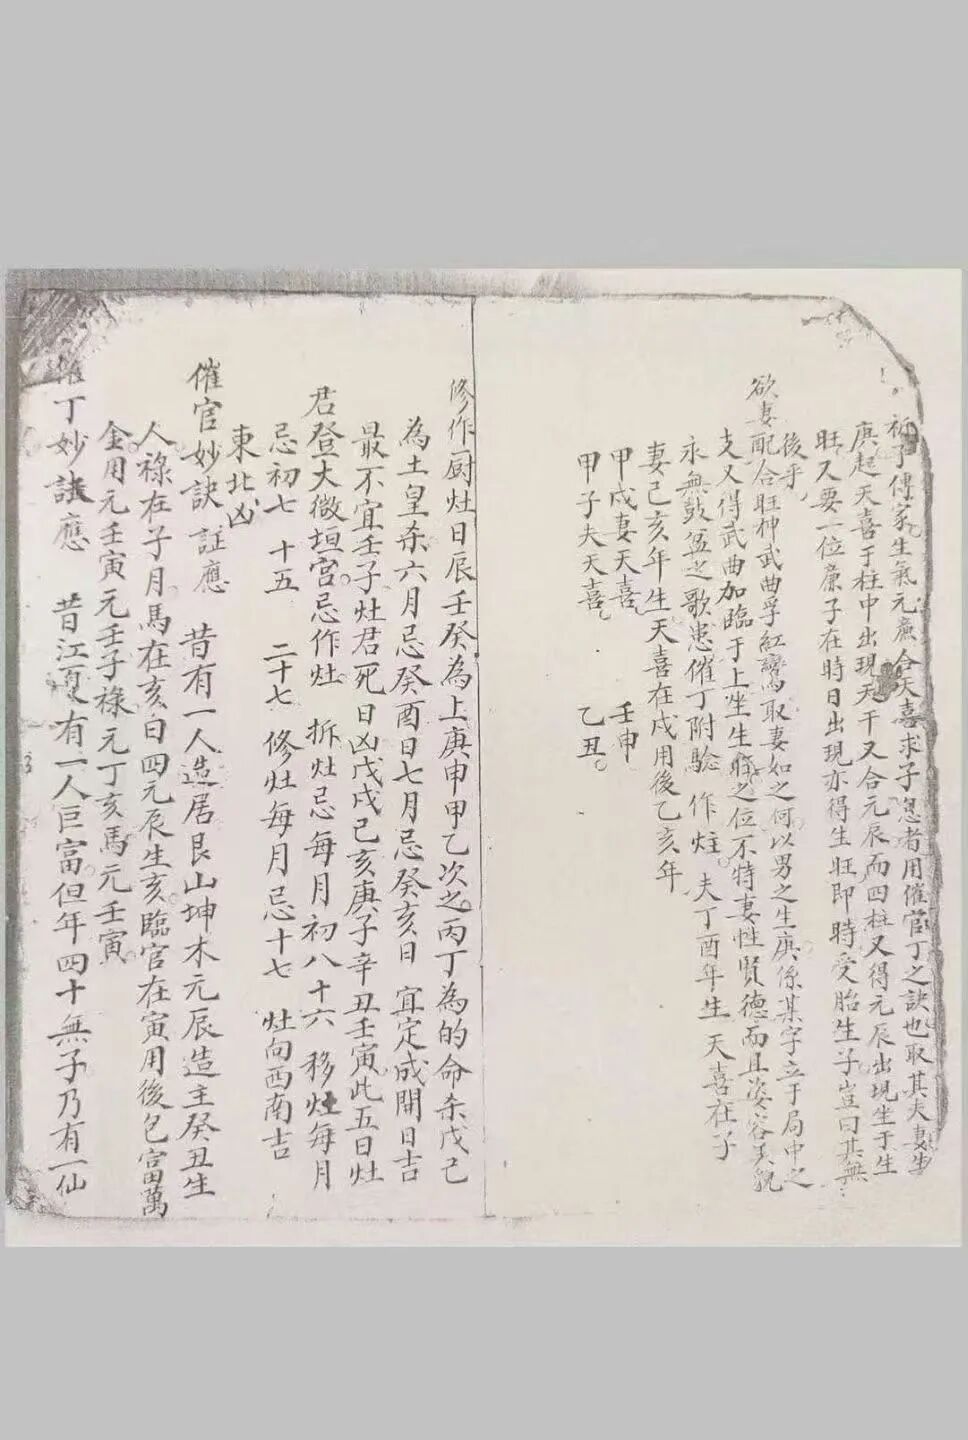 祈子傳家生氣元廉合天喜求子息者用催官丁之訣也取其夫妻生
庚起天喜于柱中出現天干又合元辰而四柱又得元辰出現生于生
旺又要一位廉子在時日出現亦得生旺即時受胎生子豈曰其無
後乎
欲妻配合旺神武曲孚紅鸞取妻如之何以男之生庚係某字立于局中之
支又得武曲加臨于上坐生旺之位不特妻性賢德而且姿容美貌
永無鼓盆之歌患催丁附驗 作炷 夫丁酉年生 天喜在子
妻己亥年生天喜在戍用後乙亥年
甲戍妻天喜 壬申
甲子夫天喜 乙丑
修作厨灶日辰壬癸為上庚申甲乙次之丙丁為的命杀戊己
為土皇杀六月忌癸酉日七月忌癸亥日 宜定成開日吉
最不宜壬子灶君死日凶戊戍己亥庚子辛丑壬寅此五日灶
君登大微垣宮忌作灶 拆灶忌每月初八十六 移灶每月
忌初七 十五 二十七 修灶每月忌十七 灶向西南吉
東北凶
催官妙訣註應 昔有一人造居艮山坤木元辰造主癸丑生
人祿在子月馬在亥白四元辰生亥臨官在寅用後包富萬
金用元壬寅元壬子祿元丁亥馬元壬寅
丁妙訣應 昔江夏有一人巨富但年四十無子乃有一仙